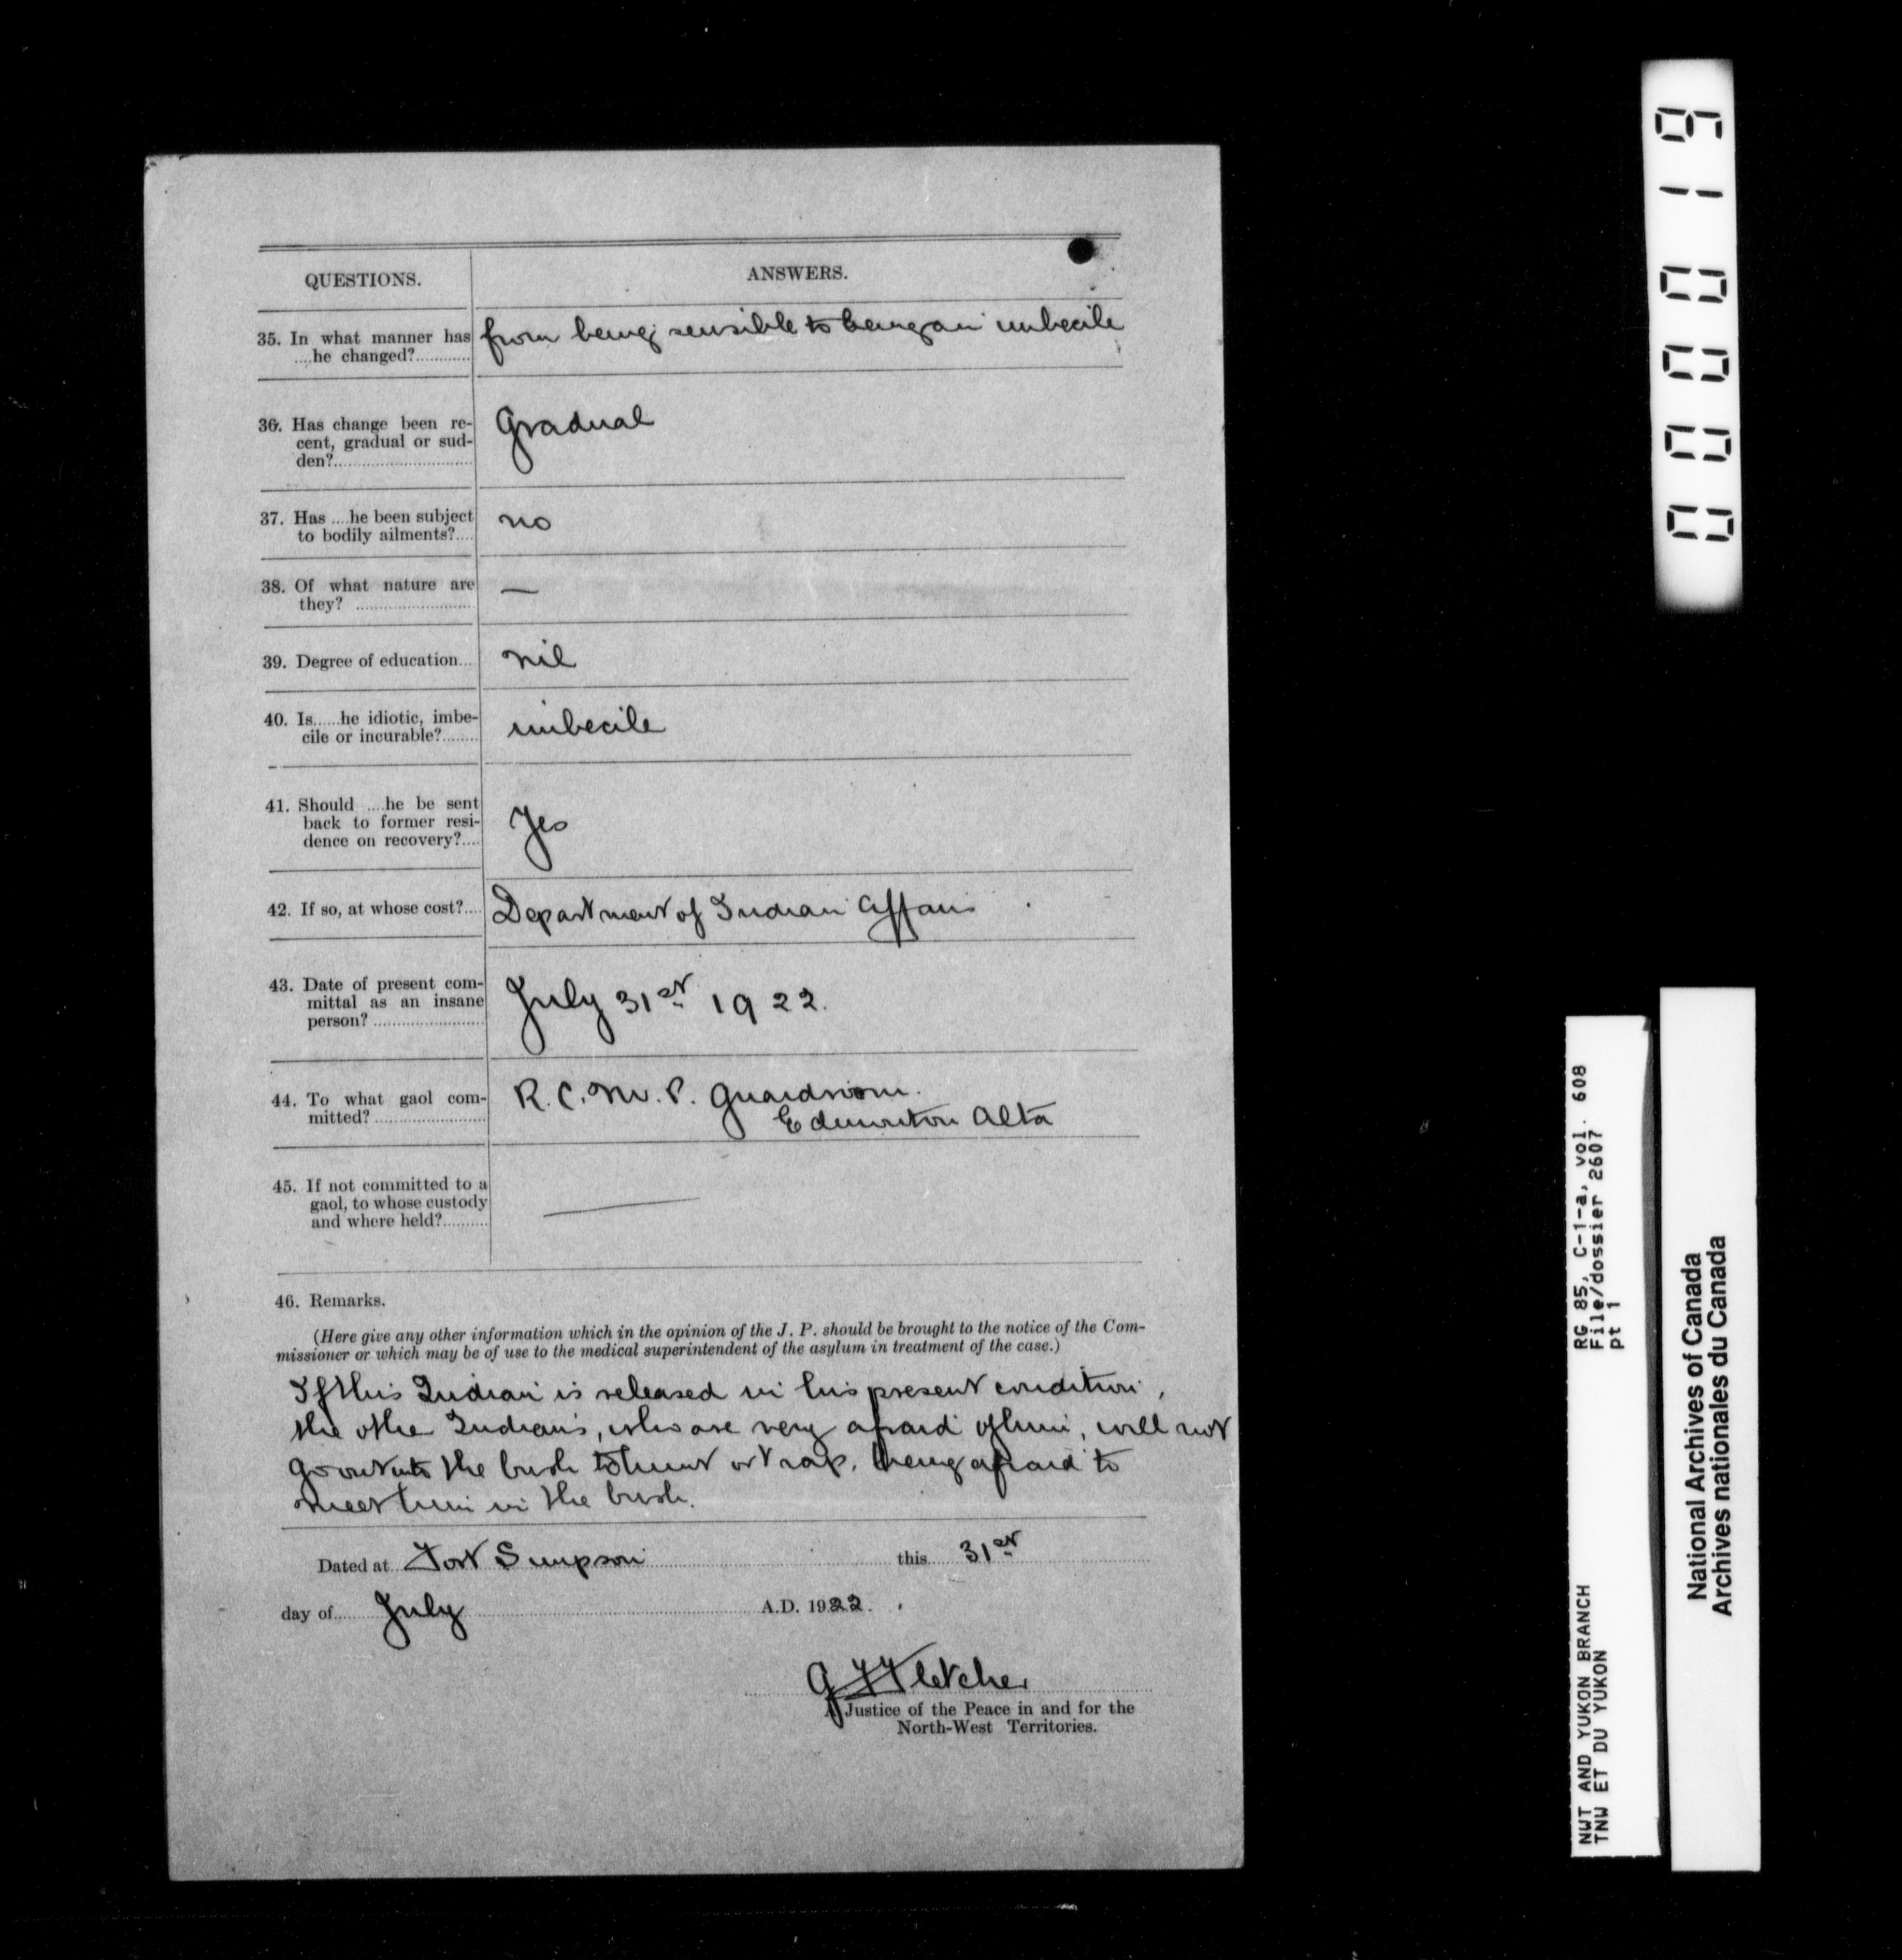 QUESTIONS.
ANSWERS.
35. In what manner has
....he changed?............
from being sensible to being an imbecile
36. Has change been re-
cent, gradual or sud-
den?..............................
Gradual
37. Has ....he been subject
to bodily ailments?....
no
38. Of what nature are
they? ..........................
—
39. Degree of education....
nil
40. Is......he idiotic, imbe-
cile or incurable?........
imbecile
41. Should ....he be sent
back to former resi-
dence on recovery?....
Yes
42. If so, at whose cost?....
Department of Indian Affairs
43. Date of present com-
mittal as an insane
person? ........................
July 31st 1922.
44. To what gaol com-
mitted? ........................
R.C.M.P. Guardroom.
Edmonton Alta
45. If not committed to a
gaol, to whose custody
and where held?..........
46. Remarks.
(Here give any other information which in the opinion of the J. P. should be brought to the notice of the Com-
missioner or which may be of use to the medical superintendent of the asylum in treatment of the case.)
If this Indian is released in his present condition,
the othe Indians, who are very afraid of him, will not
go out into the bush to hunt or trap, being afraid to
meet him in the bush.
Dated at Fort Simpson this 31st
day of July A.D. 1922.
G F Fletcher
A Justice of the Peace in and for the
North-West Territories.
000019
RG 85, C-1-a, vol. 608
File/dossier 2607
pt 1
NWT AND YUKON BRANCH
TNW ET DU YUKON
National Archives of Canada
Archives nationales du Canada